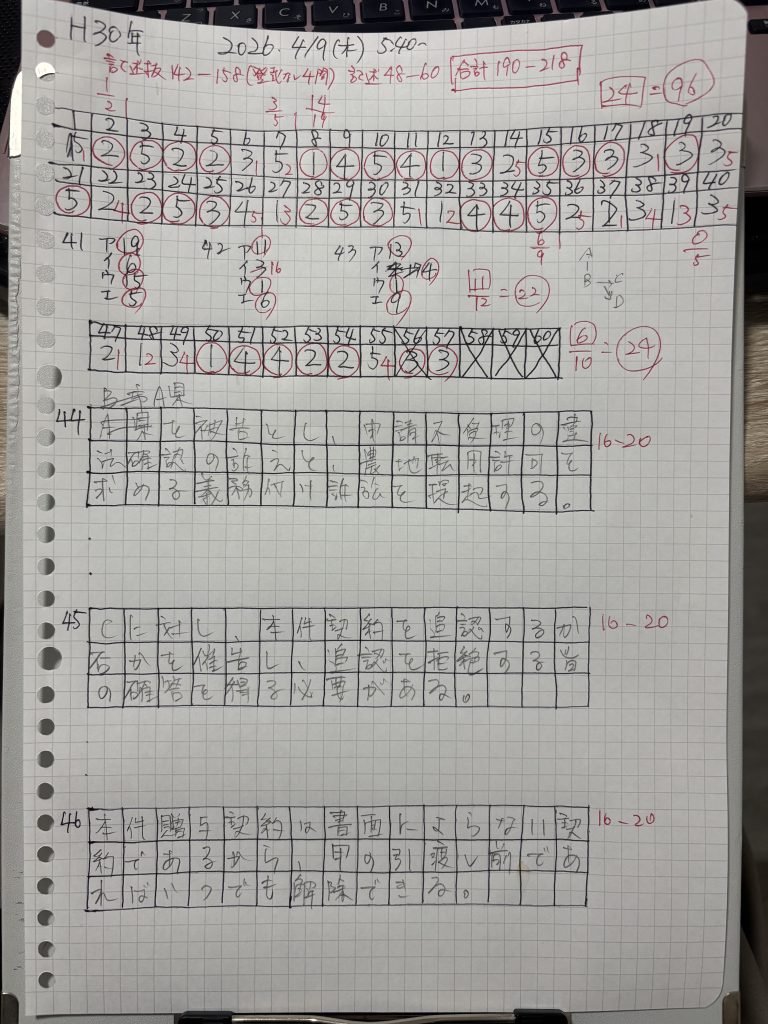 H30年
2026. 4/9(木) 5:40~
記述抜 142-158 記述48-60 合計190-218
1/2 3/5 14/19 24 = 96
1 2 3 4 5 6 7 8 9 10 11 12 13 14 15 16 17 18 19 20
2 5 2 2 3 1 5 2 1 4 5 4 1 3 2 5 5 3 3 3 1 3 3 5
21 22 23 24 25 26 27 28 29 30 31 32 33 34 35 36 37 38 39 40
5 2 4 2 5 3 4 5 1 3 2 5 3 5 1 1 2 4 4 5 2 5 2 1 3 4 1 3 3 5
6/9 0/5
41 ア 19 42 ア 11 43 ア 13
イ 6 イ 3 16 イ 4
ウ 15 ウ 1 ウ 1
エ 5 エ 6 エ 9
11/12 = 22
A
B → C
D
47 48 49 50 51 52 53 54 55 56 57 58 59 60
2 1 1 2 3 4 1 4 4 2 2 5 4 3 3
6/10 = 24
A県
44 を被告とし、申請不受理の違
法確認の訴えと、農地転用許可を
求める義務付け訴訟を提起する。
16-20
45 Cに対し、本件契約を追認するか
否かを催告し、追認を拒絶する旨
の確答を得る必要がある。
16-20
46 本件贈与契約は書面によらない契
約であるから、甲の引渡し前であ
ればいつでも解除できる。
16-20